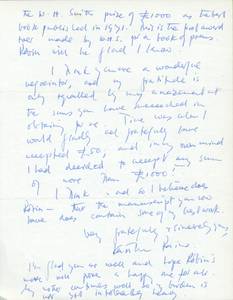 the W. H. Smith prize of £1000 as the best
book published in 1971. This is the first award
ever made by W.H.S. for a book of poems
Robin will be glad I know.
I think you are a wonderful
negotiator, and my gratitude is
only equalled by my amazement at
the sums you have succeeded in
obtaining for me. Time was when I
would gladly and gratefully have
accepted £50, and in my own mind
I had decided to accept any sum
of more than £1000!
I think - and so I believe does
Robin - that the manuscript you now
have does contain some of my best work.
Very gratefully & sincerely
Kathleen Raine
I'm glad you are well and hope Robin's
move will prove a happy one for all.
not yet intolerably heavy